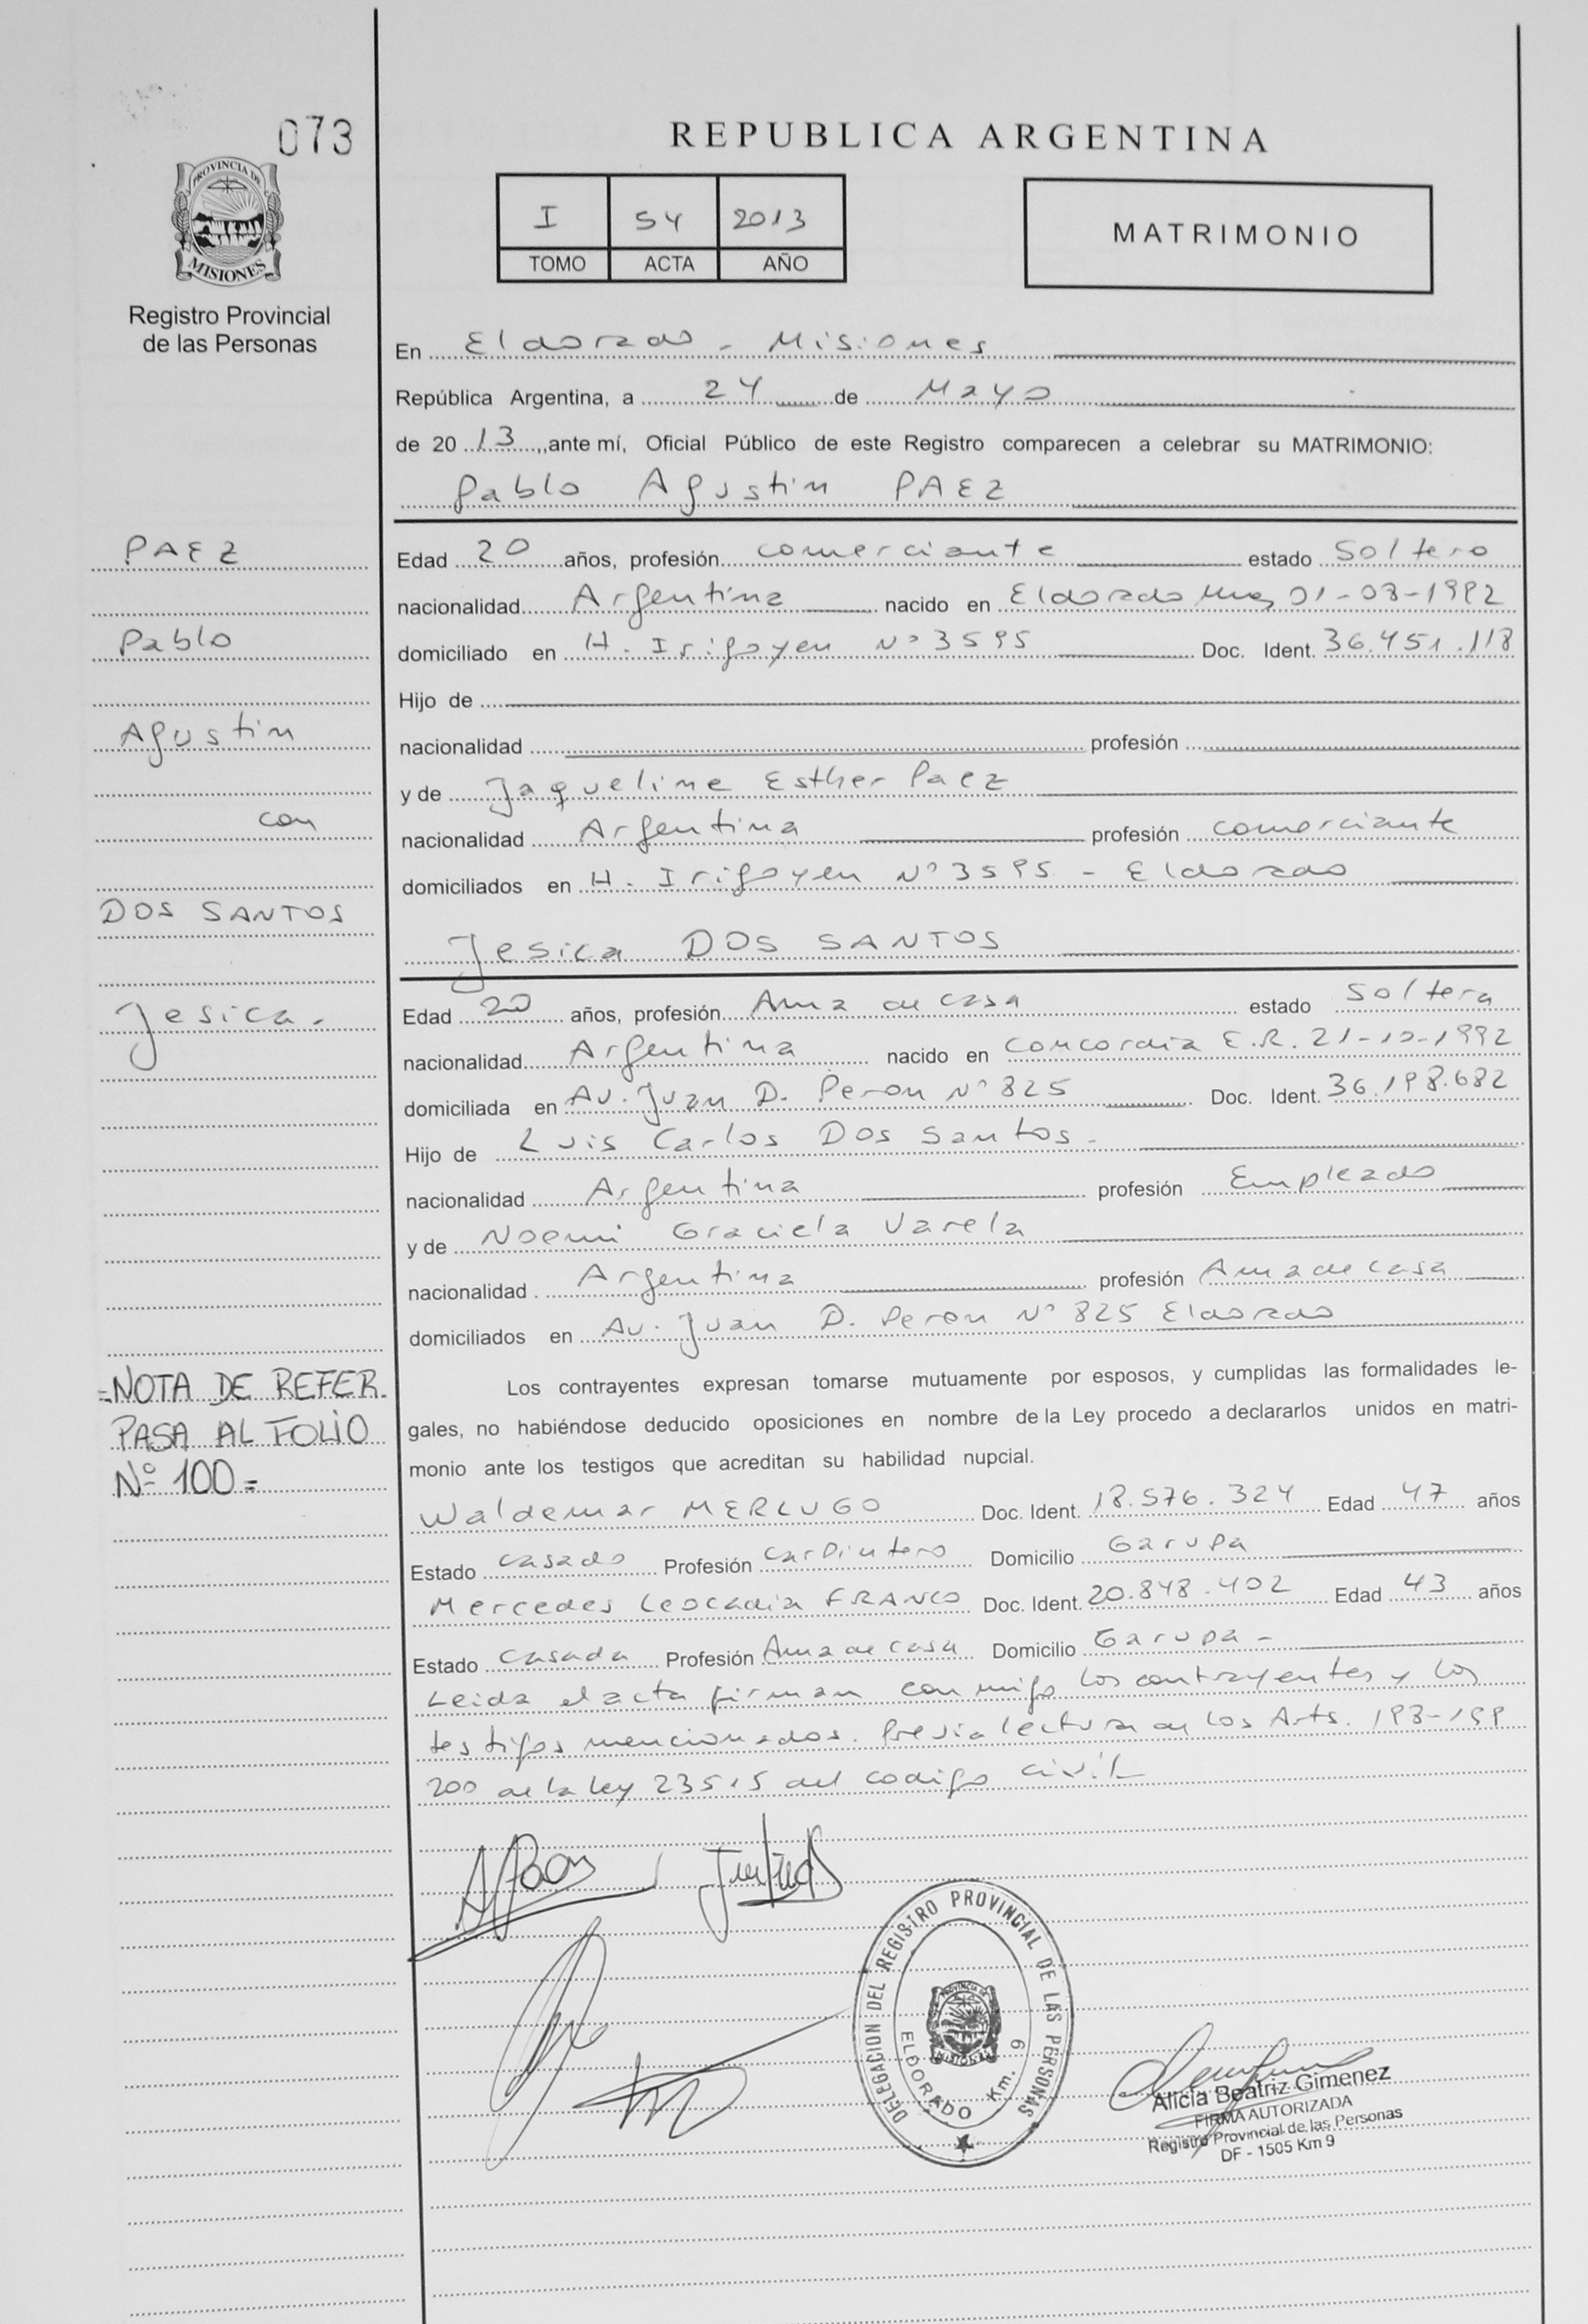 073
REPUBLICA ARGENTINA
PROVINCIA DE
MISIONES
I 54 2013
TOMO ACTA AÑO
MATRIMONIO
Registro Provincial
de las Personas
En Eldorado - Misiones
República Argentina, a 24 de Mayo
de 20 13, ante mí, Oficial Público de este Registro comparecen a celebrar su MATRIMONIO:
Pablo Agustin PAEZ
PAEZ
Pablo
Agustin
con
DOS SANTOS
Jesica.
Edad 20 años, profesión comerciante estado Soltero
nacionalidad Argentina nacido en Eldorado Mnes 01-08-1992
domiciliado en H. Irigoyen N° 3595 Doc. Ident. 36.451.118
Hijo de
nacionalidad profesión
y de Jaqueline Esther Paez
nacionalidad Argentina profesión comerciante
domiciliados en H. Irigoyen N° 3595 - Eldorado
Jesica DOS SANTOS
Edad 20 años, profesión Ama de casa estado Soltera
nacionalidad Argentina nacido en Concordia E.R. 21-10-1992
domiciliada en Av. Juan D. Peron N° 825 Doc. Ident. 36.198.682
Hijo de Luis Carlos Dos Santos -
nacionalidad Argentina profesión Empleado
y de Noemi Graciela Varela
nacionalidad Argentina profesión Ama de casa
domiciliados en Av. Juan D. Peron N° 825 Eldorado
=NOTA DE REFER.
PASA AL FOLIO
Nº 100=
Los contrayentes expresan tomarse mutuamente por esposos, y cumplidas las formalidades le-
gales, no habiéndose deducido oposiciones en nombre de la Ley procedo a declararlos unidos en matri-
monio ante los testigos que acreditan su habilidad nupcial.
Waldemar MERLUGO Doc. Ident. 18.576.324 Edad 47 años
Estado casado Profesión Carpintero Domicilio Garupa
Mercedes Leocadia FRANCO Doc. Ident. 20.848.402 Edad 43 años
Estado Casada Profesión Ama de casa Domicilio Garupa -
Leida el acta firman conmigo los contrayentes y los
testigos mencionados. Previa lectura de los Arts. 198-199
200 de la ley 23515 del codigo civil
DELEGACION DEL REGISTRO PROVINCIAL DE LAS PERSONAS
ELDORADO Km. 9
Alicia Beatriz Gimenez
FIRMA AUTORIZADA
Registro Provincial de las Personas
DF - 1505 Km 9